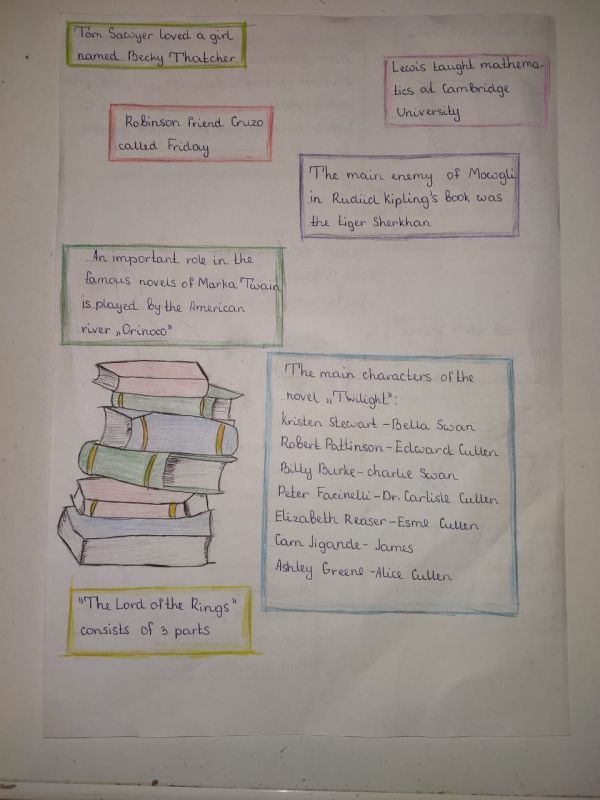 Tom Sawyer loved a girl
named Becky Thatcher
Lewis taught mathema-
tics at Cambridge
University
Robinson friend Cruzo
called Friday
The main enemy of Mowgli
in Rudiid Kipling's Book was
the tiger Sherkhan
An important role in the
famous novels of Marka Twain
is played by the American
river „Orinoco"
The main characters of the
novel „Twilight":
Kristen Stewart - Bella Swan
Robert Pattinson - Edward Cullen
Billy Burke - charlie Swan
Peter Facinelli - Dr. Carlisle Cullen
Elizabeth Reaser - Esme Cullen
Cam Jigande - James
Ashley Greene - Alice Cullen
"The Lord of the Rings"
consists of 3 parts